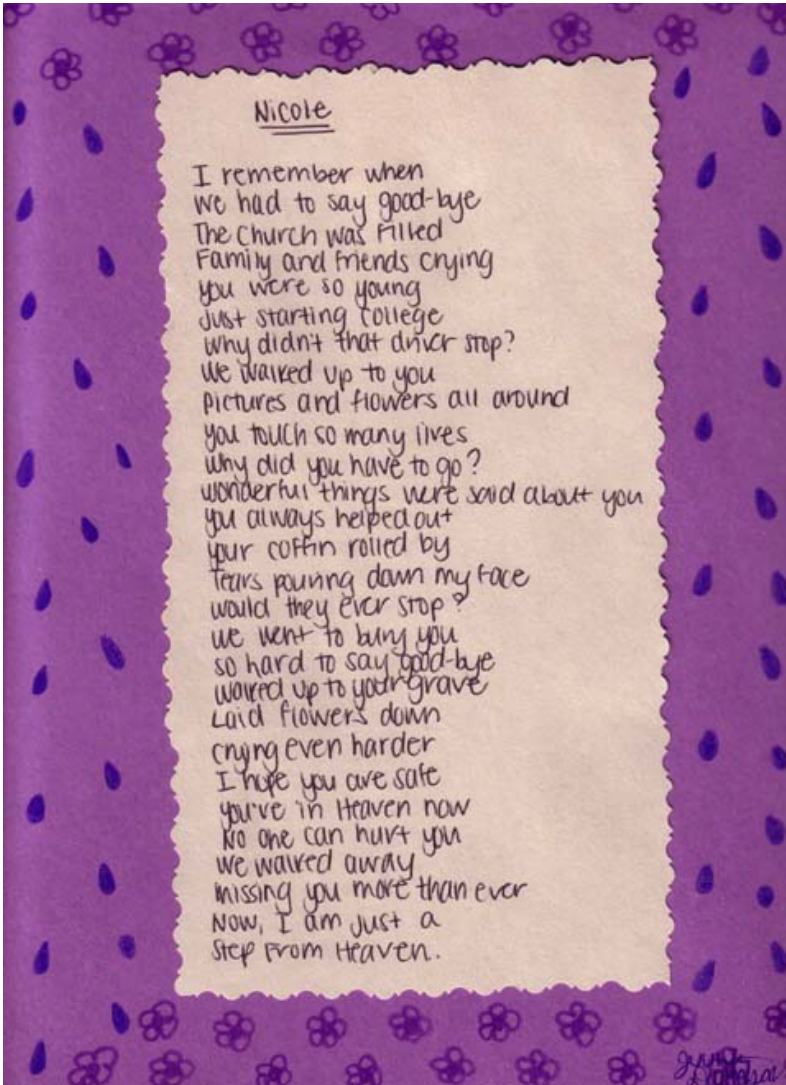 Nicole
I remember when
we had to say good-bye
The Church was Filled
Family and friends crying
you were so young
Just starting college
why didn't that driver stop?
We walked up to you
pictures and flowers all around
you touch so many lives
why did you have to go?
wonderful things were said about you
you always helped out
your coffin rolled by
Tears pouring down my face
would they ever stop?
we went to bury you
so hard to say good-bye
walked up to your grave
Laid flowers down
crying even harder
I hope you are safe
you're in Heaven now
No one can hurt you
we walked away
missing you more than ever
Now, I am just a
Step From Heaven.